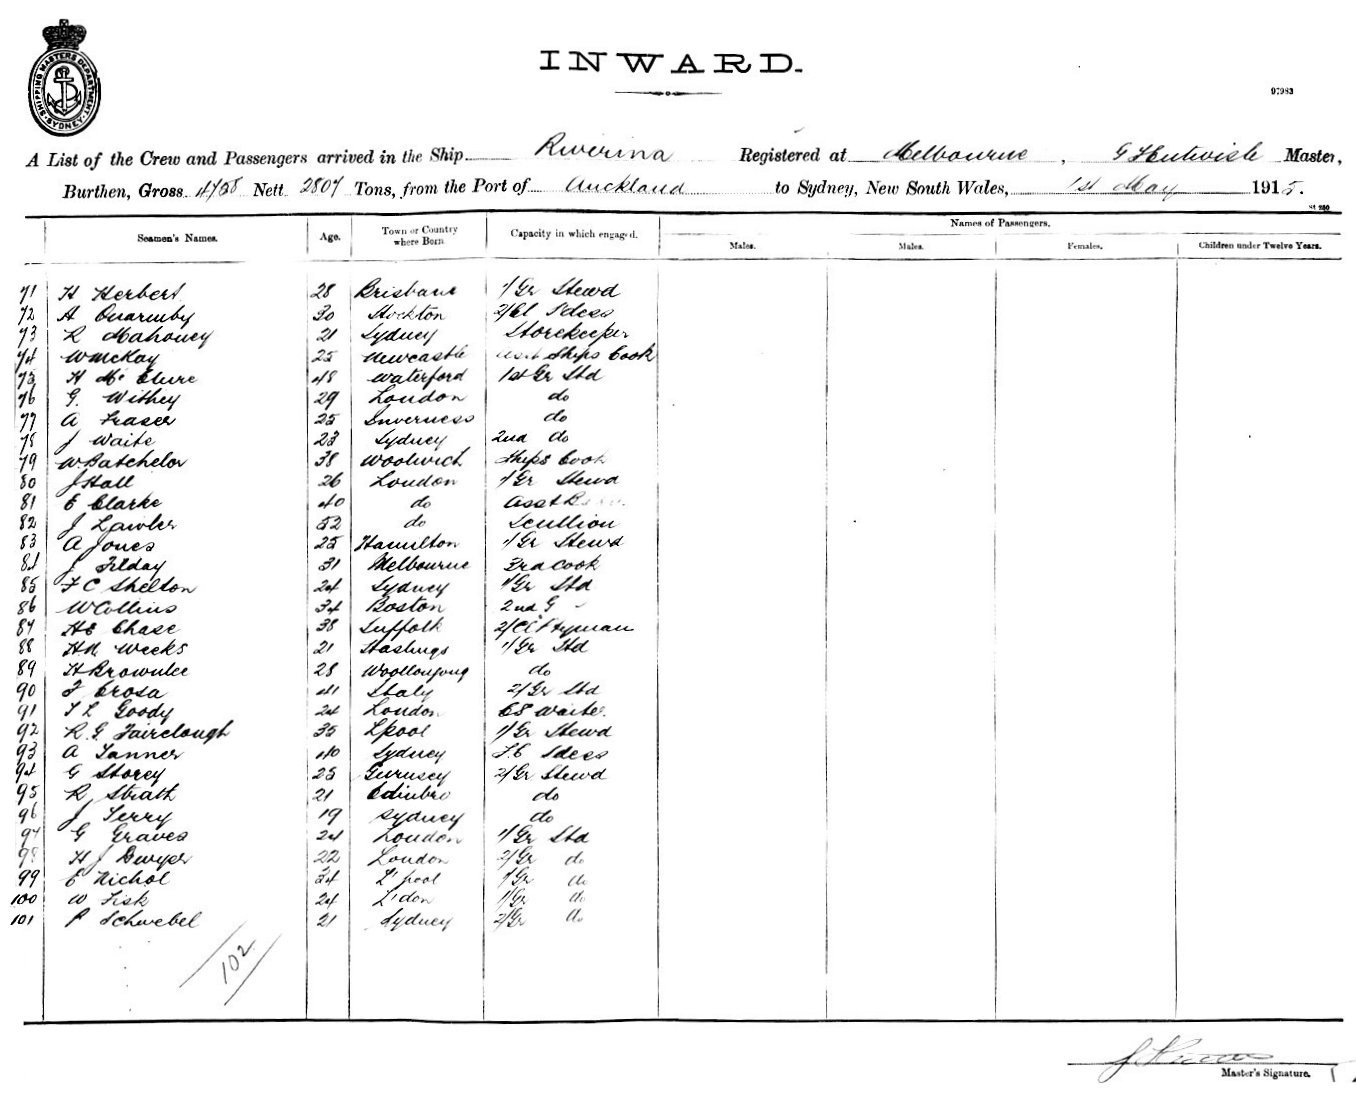 SHIPPING MASTERS DEPARTMENT SYDNEY
INWARD.
97983
A List of the Crew and Passengers arrived in the Ship Riverina Registered at Melbourne, Master,
Burthen, Gross 4758 Nett 2807 Tons, from the Port of Auckland to Sydney, New South Wales, 1st May 1915.
Seamen's Names. Age. Town or Country where Born Capacity in which engaged. Names of Passengers.
Males. Males. Females. Children under Twelve Years.
71 H Herbert 28 Brisbane 1/Gr Stewd
72 A Quarmby 30 Stockton 2/Cl Sdess
73 R Mahoney 21 Sydney Storekeeper
74 W McKay 25 Newcastle asst Ships Cook
75 H McClure 48 Waterford 1st Gr Std
76 G. Withey 29 London do
77 A Fraser 25 Inverness do
78 J Waite 23 Sydney 2nd do
79 W Batchelor 38 Woolwich Ships Cook
80 J Hall 26 London 1/Gr Stewd
81 E Clarke 40 do Asst
82 J Lawler 52 do Scullion
83 A Jones 25 Hamilton 1/Gr Stewd
84 J Tilday 31 Melbourne 3rd Cook
85 F C Shelton 24 Sydney 1/Gr Std
86 W Collins 34 Boston 2nd G
87 HE Chase 38 Suffolk 2/Cl Ptyman
88 H.N. Weeks 21 Hastings 1/Gr Std
89 H Brownlee 28 Woollongong do
90 F Crosa 41 Italy 2/Gr Std
91 T L Goody 24 London CS Waiter.
92 R.G. Fairclough 35 Lpool 1/Gr Stewd
93 A Tanner 40 Sydney F.C Sdess
94 G Storey 25 Gurnsey 2/Gr Stewd
95 R Strath 21 Edinbro do
96 J Terry 19 Sydney do
97 G Graves 24 London 1/Gr Std
98 H J Dwyer 22 London 2/Gr do
99 E Nichol 34 L'pool 1/Gr do
100 W Fisk 24 L'don 1/Gr do
101 P Schwebel 21 Sydney 2/Gr do
102
Master's Signature.